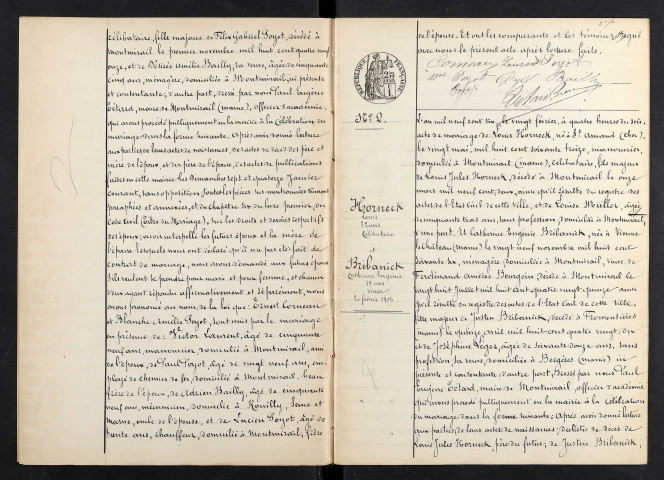 célibataire, fille majeure de Félix Gabriel Poyot, décédé à
Montmirail le premier novembre mil huit cent quatre vingt
onze, et de Désirée Amélie Bailly, sa veuve, âgée de cinquante
cinq ans, ménagère, domiciliée à Montmirail, ici présente
et consentante, d'autre part, devant nous Paul Eugène
Létard, maire de Montmirail (Marne), officier d'académie,
qui avons procédé publiquement en la mairie à la Célébration du
mariage dans la forme suivante. Après avoir donné lecture
aux parties de leurs actes de naissance, des actes de décès des père et
mère de l'époux, et du père de l'épouse, des actes de publications
faites en cette mairie les Dimanches sept et quatorze Janvier
courant, sans opposition, toutes les pièces sus mentionnées dûment
paraphées et annexées, et du chapitre six du livre premier, du
Code Civil (titre du Mariage), sur les droits et devoirs respectifs
des époux; avoir interpellé les futurs époux et la mère de
l'épouse lesquels nous ont déclaré qu'il n'a pas été fait de
contrat de mariage, nous avons demandé aux futurs époux
s'ils veulent se prendre pour mari et pour femme, et chacun
d'eux ayant répondu affirmativement et séparément, nous
avons prononcé au nom de la loi que: Ernest Corneau
et Blanche Amélie Poyot, sont unis par le mariage
en présence de: Victor Laurent, âgé de cinquante
neuf ans, manouvrier, domicilié à Montmirail, ami
de l'époux, de Paul Poyot, âgé de vingt neuf ans, em
ployé de chemin de fer, domicilié à Montmirail, beau
frère de l'époux, de Adrien Bailly, âgé de cinquante
neuf ans, mécanicien, domicilié à Rouilly, Seine et
Marne, oncle de l'épouse, et de Lucien Poyot, âgé de
trente ans, chauffeur, domicilié à Montmirail, frère
de l'épouse. Et ont les comparants et les témoins signé
avec nous le présent acte après lecture faite.
Poyot
Bailly
RÉPUBLIQUE FRANÇAISE
No 2.
Horneck
Louis
32 ans
Célibataire
et
Bribanick
Catherine Eugénie
39 ans
veuve
20 février 1906
L'an mil neuf cent six, le vingt février, à quatre heures du soir,
acte de mariage de Louis Horneck, né à St Amand (Cher),
le vingt mai, mil huit cent soixante treize, manouvrier,
domicilié à Montmirail (Marne), célibataire, fils majeur
de Louis Jules Horneck, décédé à Montmirail le onze
mars mil neuf cent deux, ainsi qu'il résulte du registre des
actes de l'Etat Civil de cette ville, et de Louise Meiller, âgée
de cinquante trois ans, sans profession, domiciliée à Montmirail,
d'une part. Et Catherine Eugénie Bribanick, née à Vienne
le château (Marne) le vingt neuf novembre mil huit cent
soixante six, ménagère domiciliée à Montmirail, veuve de
Ferdinand Amédée Bourgoin décédé à Montmirail le
vingt huit Juillet mil huit cent quatre vingt quinze ainsi
qu'il résulte du registre des actes de l'Etat Civil de cette ville,
fille majeure de Justin Bribanick, décédé à Fromentières
(Marne) le quinze avril mil huit cent quatre vingt dix
et de Joséphine Léger, âgée de soixante onze ans, sans
profession, sa veuve, domiciliée à Bergères (Marne) ici
présente et consentante d'autre part, dressé par nous Paul
Eugène Létard, maire de Montmirail, officier d'académie
qui avons procédé publiquement en la mairie à la célébration
du mariage dans la forme suivante: Après avoir donné lecture
aux parties, de leurs actes de naissances, des actes de décès de
Louis Jules Horneck, père du futur, de Justin Bribanick,